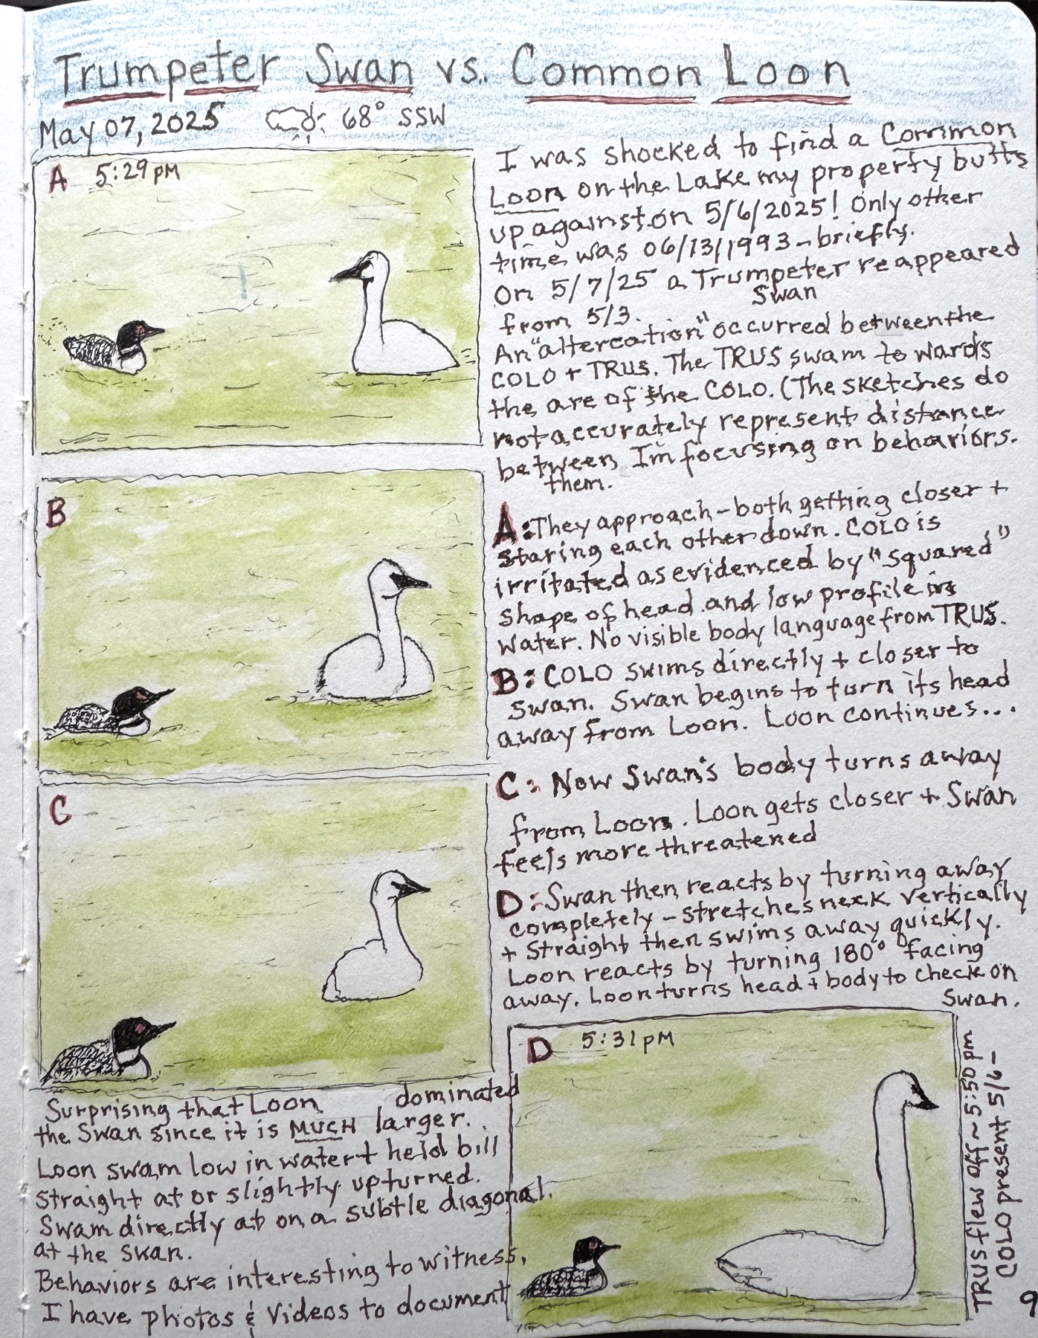 Trumpeter Swan vs. Common Loon
May 07, 2025 68° SSW
A 5:29 pm
I was shocked to find a Common
Loon on the Lake my property butts
up against on 5/6/2025! Only other
time was 06/13/1993 - briefly.
On 5/7/25 a Trumpeter reappeared
Swan
from 5/3.
An "altercation" occurred between the
COLO + TRUS. The TRUS swam to wards
the are of the COLO. (The sketches do
not accurately represent distance
between, I'm focusing on behaviors.
them.
B
A: They approach - both getting closer +
staring each other down. COLO is
irritated as evidenced by "squared"
shape of head and low profile in
water. No visible body language from TRUS.
B: COLO swims directly + closer to
swan. Swan begins to turn its head
away from Loon. Loon continues...
C
C: Now Swan's body turns away
from Loon. Loon gets closer + Swan
feels more threatened
D: Swan then reacts by turning away
completely - stretches neck vertically
+ straight then swims away quickly.
Loon reacts by turning 180° facing
away. Loon turns head + body to check on
Swan.
D 5:31 pm
Surprising that Loon dominated
the Swan since it is MUCH larger.
Loon swam low in water + held bill
straight at or slightly upturned.
Swam directly at on a subtle diagonal.
at the swan.
Behaviors are interesting to witness.
I have photos & videos to document
TRUS flew off ~ 5:50 pm
COLO present 5/6 -
9